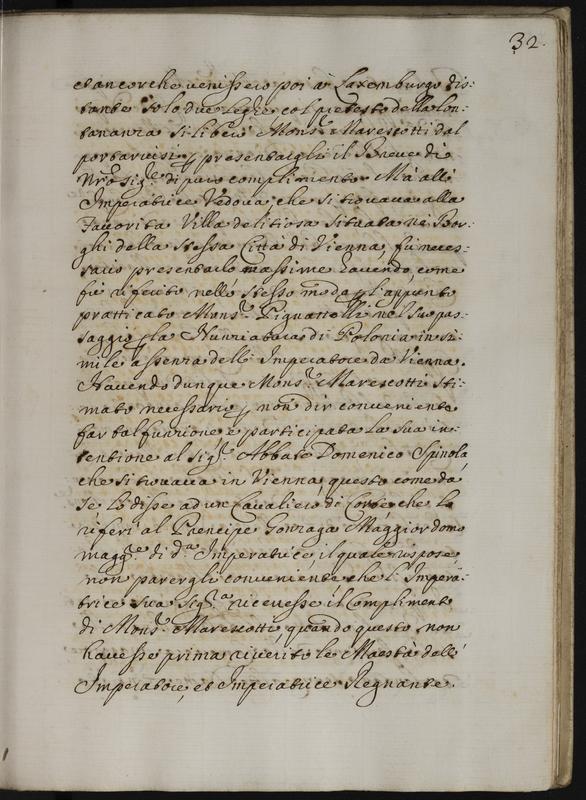 32.
et ancorche venissero poi à Laxemburgo dis:
tante solo due leghe col pretesto della lon:
tananza si liberò Monsr. Marescotti dal
portarvisi p presentargli il Breve di
Nrõ Sigre. di puro complimento. Mà all'
Imperatrice Vedova, che si trovava alla
Favorita Villa delitiosa situata nè Bor:
ghi della stessa Città di Vienna, fù neces:
sario presentarlo massime havendo, come
fù riferito nello stesso modo p l'appunto
pratticato Monsr. Pignattelli nel suo pas:
saggio p la Nunziatura di Polonia in si:
mile assenza dell' Imperatore da Vienna.
Havendo dunque Monsr. Marescotti sti:
mato necessario, p non dir conveniente
far tal funzione, è participata la sua in:
tentione al Sigr. Abbate Domenico Spinola,
che si trovava in Vienna, questo come da
se lo disse ad un Cavaliero di Corte, che lo
riferì al Prencipe Gonzaga Maggiordomo
maggre. di da. Imperatrice, il quale rispose,
non parergli conveniente che l' Impera:
trice sua Sigra. ricevesse il Complimento
di Monsr. Marescotti, quando questo non
havesse prima riverito le Maestà dell'
Imperatore, et Imperatrice Regnante.